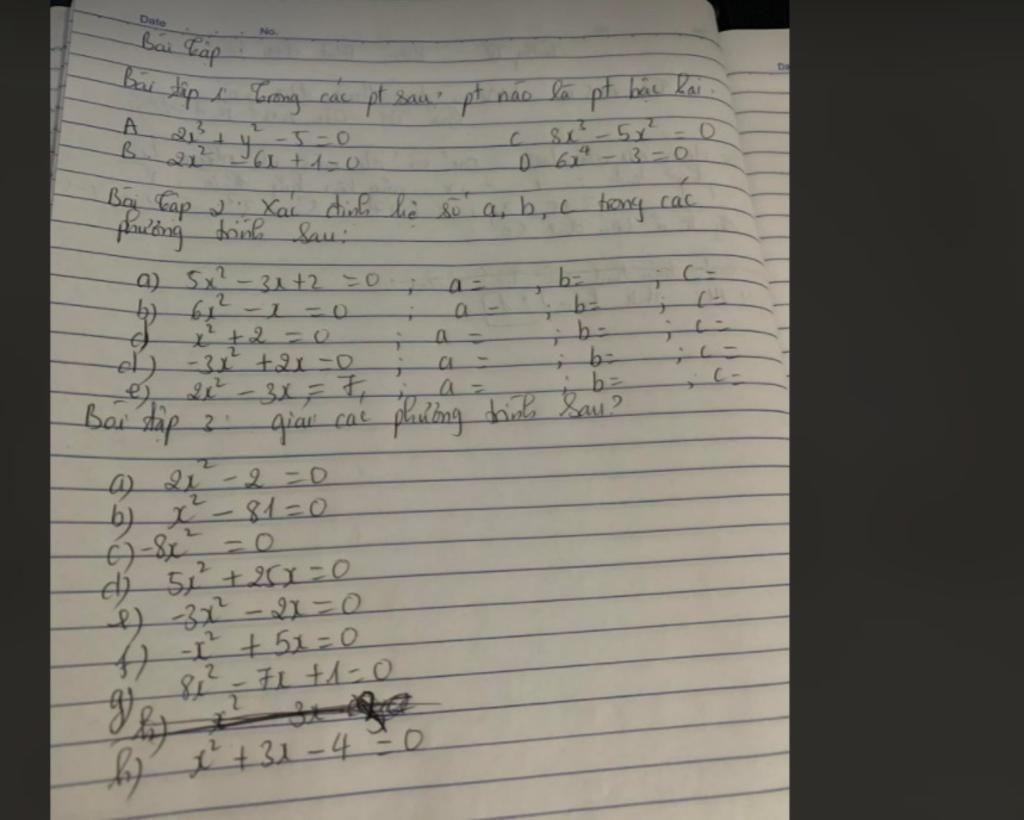 Date No.
Bài tập :
Bài tập 1: Trong các pt sau: pt nào là pt bậc hai.
A 2x³ + y² - 5 = 0 C 8x³ - 5x² = 0
B. 2x² - 6x + 1 = 0 D 6x⁴ - 3 = 0
Bài tập 2: Xác định hệ số a, b, c trong các
phương trình sau:
a) 5x² - 3x + 2 = 0 ; a = , b = ; c =
b) 6x² - x = 0 ; a = ; b = ; c =
c) x² + 2 = 0 ; a = ; b = ; c =
d) -3x² + 2x = 0 ; a = ; b = ; c =
e) 2x² - 3x = 7, ; a = ; b = , c =
Bài tập 3: giải các phương trình sau?
a) 2x² - 2 = 0
b) x² - 81 = 0
c) -8x² = 0
d) 5x² + 25x = 0
e) -3x² - 2x = 0
f) -x² + 5x = 0
g) 8x² - 7x + 1 = 0
h) x² 3x
h) x² + 3x - 4 = 0